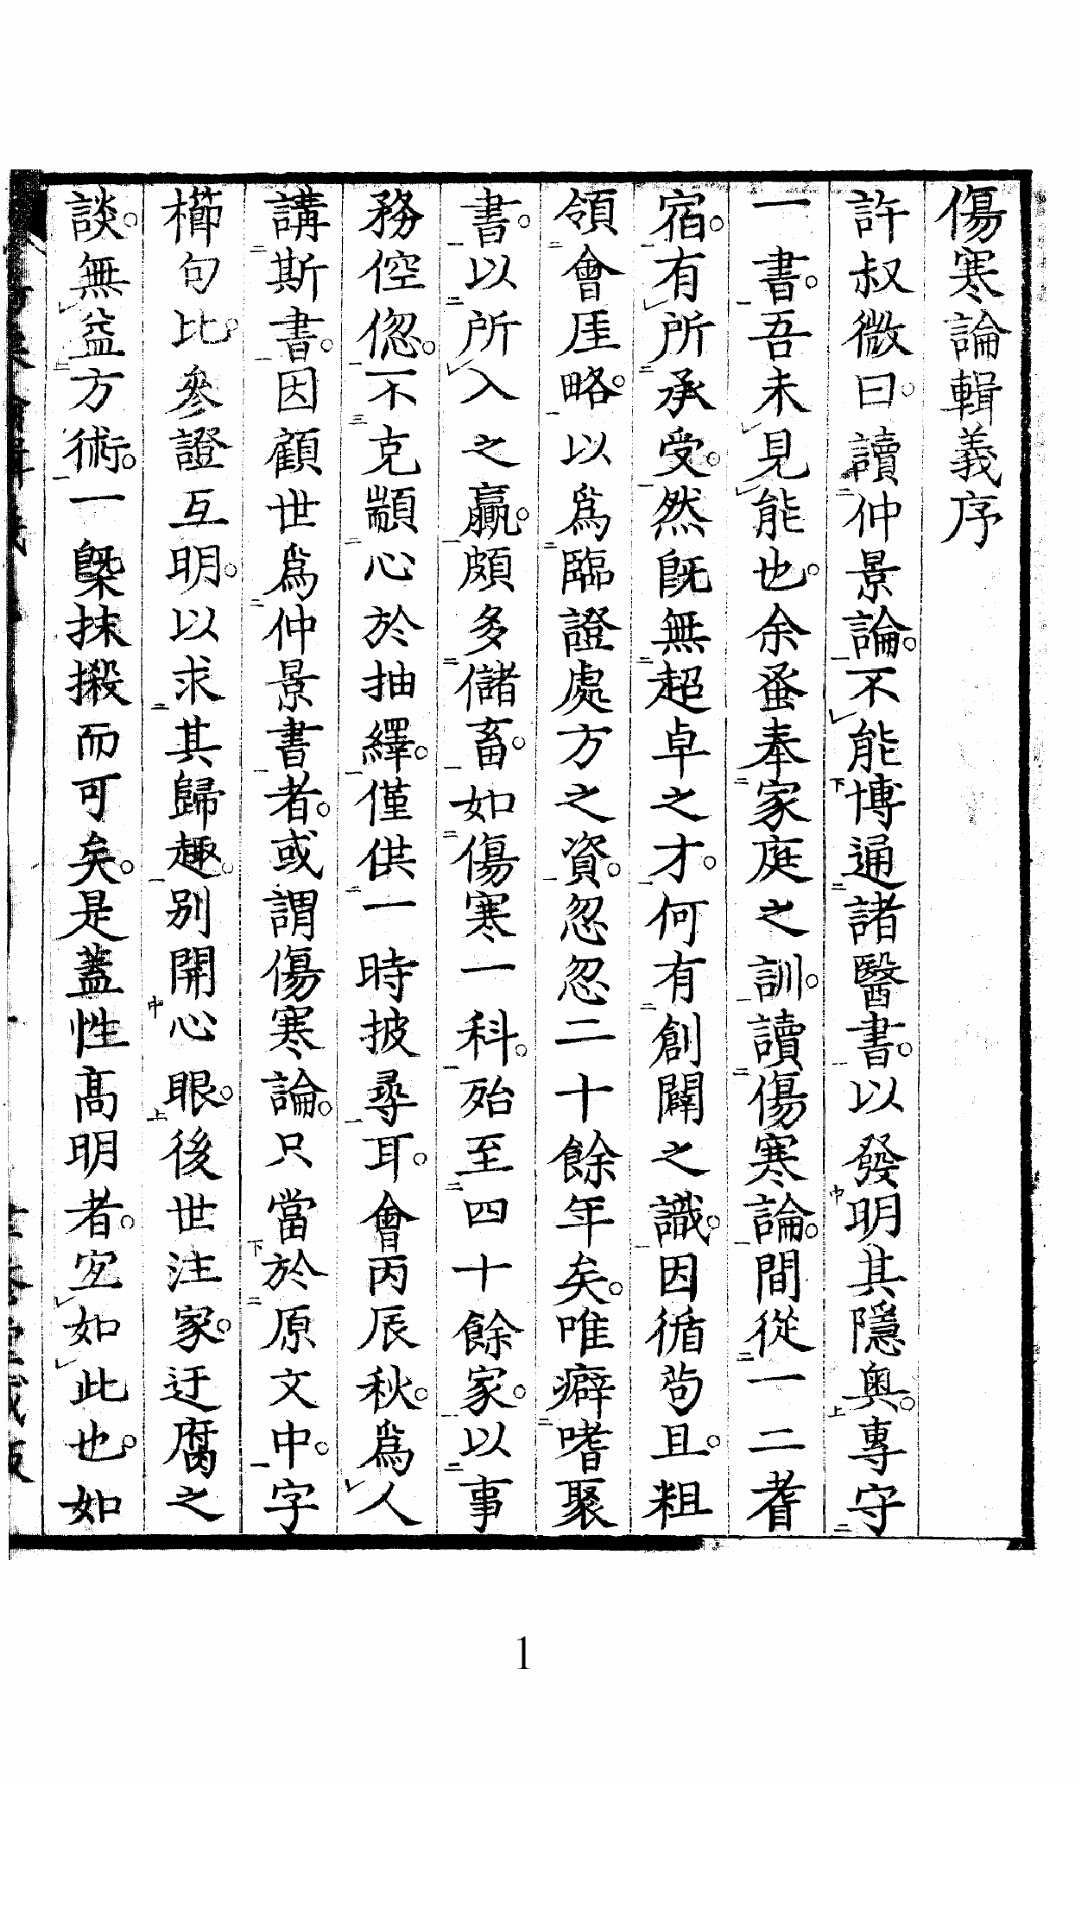 傷寒論輯義序
許叔微曰。讀仲景論。不能博通諸醫書。以發明其隱奧。專守
一書。吾未見能也。余蚤奉家庭之訓。讀傷寒論。間從一二耆
宿。有所承受。然旣無超卓之才。何有創闢之識。因循茍且。粗
領會厓略。以爲臨證處方之資。忽忽二十餘年矣。唯癖嗜聚
書。以所入之贏。頗多儲畜。如傷寒一科。殆至四十餘家。以事
務倥偬。不克顓心於抽繹。僅供一時披尋耳。會丙辰秋。爲人
講斯書。因顧世爲仲景書者。或謂傷寒論。只當於原文中。字
櫛句比。參證互明。以求其歸趣。別開心眼。後世注家。迂腐之
談。無益方術。一槩抹摋而可矣。是蓋性髙明者。宐如此也。如
1